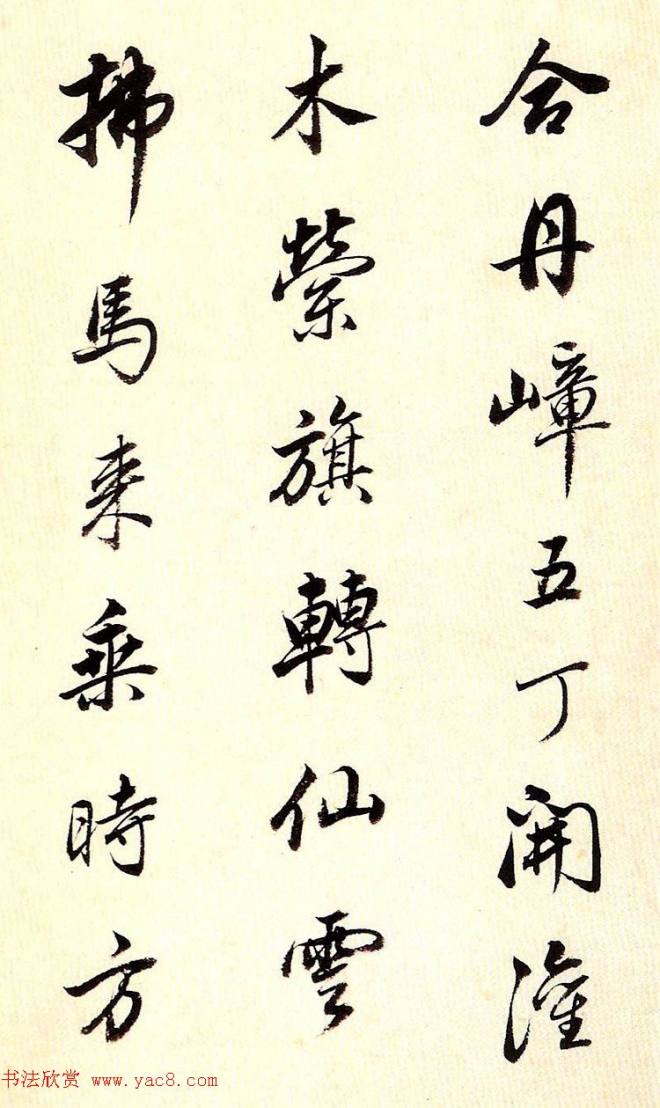 合丹嶂五丁開灌
木縈旗轉仙雲
拂馬来乘時方
书法欣赏 www.yac8.com